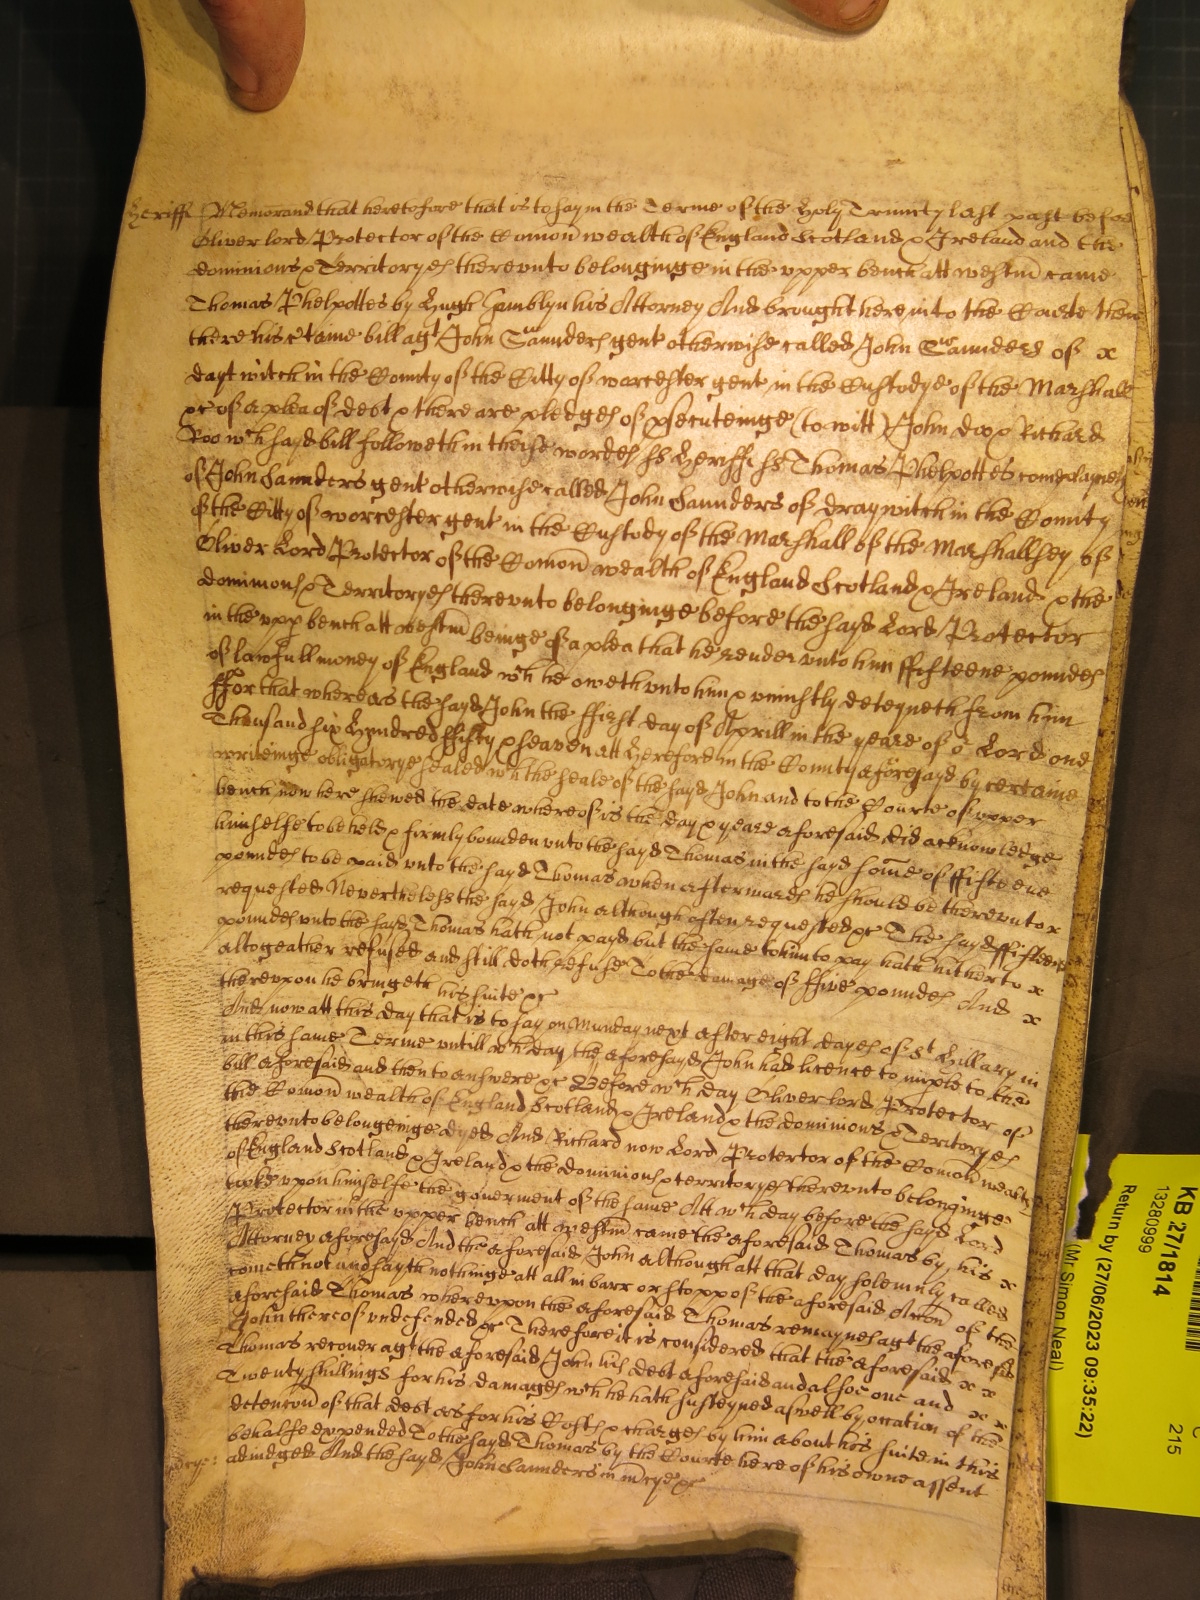 Heriff Memorand that heretofore that is to say in the Terme of the Holy Trinity last past before
Oliver lord Protector of the Comon wealth of England Scotland & Ireland and the
dominions & Territoryes therevnto belonginge in the vpper bench att westm came
Thomas Phelpottes by Hugh his Attorney And brought here into the Courte then
there his c'taine bill agt John Saunders gent otherwise called John Saunders of x
in the County of the Citty of worcester gent in the Custodye of the Marshall
&c of a plea of debt & there are pledges of p'secuteinge (to witt) John doo & Richard
Roo wch sayd bill followeth in theise wordes ss Heriff ss Thomas Phelpottes complayneth
of John Saunders gent otherwise called John Saunders of draytwitch in the County
of the Citty of worcester gent in the Custody of the Marshall of the Marshallsey of
Oliver Lord Protector of the Comon wealth of England Scotland & Ireland & the
dominions & Territoryes therevnto belonginge before the sayd Lord Protector
in the vpp bench att westm beinge of a plea that he render vnto him ffifteene poundes
of lawfull money of England wch he oweth vnto him & vniustly deteyneth from him
ffor that whereas the sayd John the ffirst day of Aprill in the yeare of or Lord one
Thousand six Hundred ffifty & seaven att Hereford in the County aforesayd by certaine
writeinge obligatorye sealed wth the seale of the sayd John and to the Courte of vpper
bench now here shewed the date whereof is the day & yeare aforesaid did acknowledge
himselfe to be held & firmly bounden vnto the sayd Thomas in the sayd some of ffifteene
poundes to be paid vnto the sayd Thomas when afterwardes he should be therevnto x
requested Neverthelesse the sayd John although often requested &c The sayd ffifteene
poundes vnto the sayd Thomas hath not payd but the same to him to pay hath hitherto x
altogeather refused and still doth refuse To the damage of ffive poundes And x
therevpon he bringeth his suite &c
And now att this day that is to say on Munday next after eight dayes of St Hillary in
in this same Terme vntill wch day the aforesayd John had licence to imple to the
bill aforesaid and then to answere &c Before wch day Oliver lord Protector of
the Comon wealth of England Scotland & Ireland & the dominions & Territoryes
therevnto belongeinge dyed And Richard now Lord Protector of the Comon wealth
of England Scotland & Ireland & the dominions & territoryes therevnto belonginge
tooke vpon himselfe the goverment of the same Att wch day before the sayd Lord
Protector in the vpper bench att westm came the aforesaid Thomas by his x
Attorney aforesayd And the aforesaid John although att that day solemnly called
cometh not and sayth nothinge att all in barr or stopp of the aforesaid Accon of the
aforesaid Thomas wherevpon the aforesaid Thomas remayneth agt the aforesaid
John thereof vndefended &c Therefore it is considered that the aforesaid x x
Thomas recover agt the aforesaid John his debt aforesaid and alsoe one and x x
Twenty shillings for his damages wch he hath susteyned aswell by occation of the
detencon of that debt as for his Costes & charges by him about his suite in this
behalfe expended To the sayd Thomas by the Courte here of his owne assent
adiudged And the sayd John Saunders in mcye &c
KB 27/1814
13280999
Return by (27/06/2023 09:35:22)
(Mr Simon Neal)
C
215